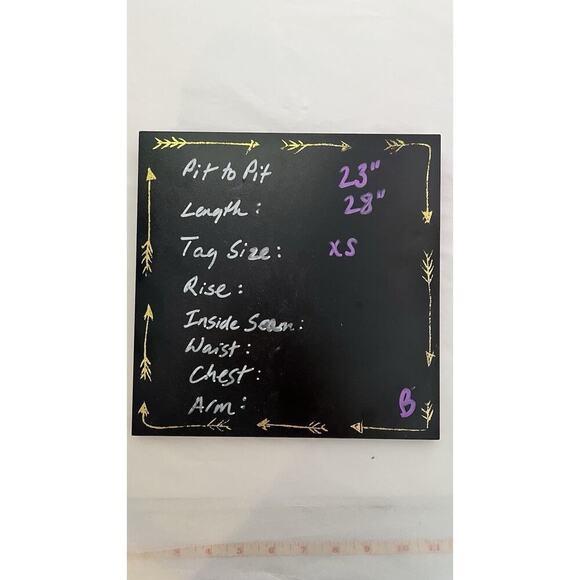 Pit to Pit 23"
Length: 28"
Tag Size: XS
Rise:
Inside Seam:
Waist:
Chest:
Arm:
B
3 4 5 6 7 8 9 10 11